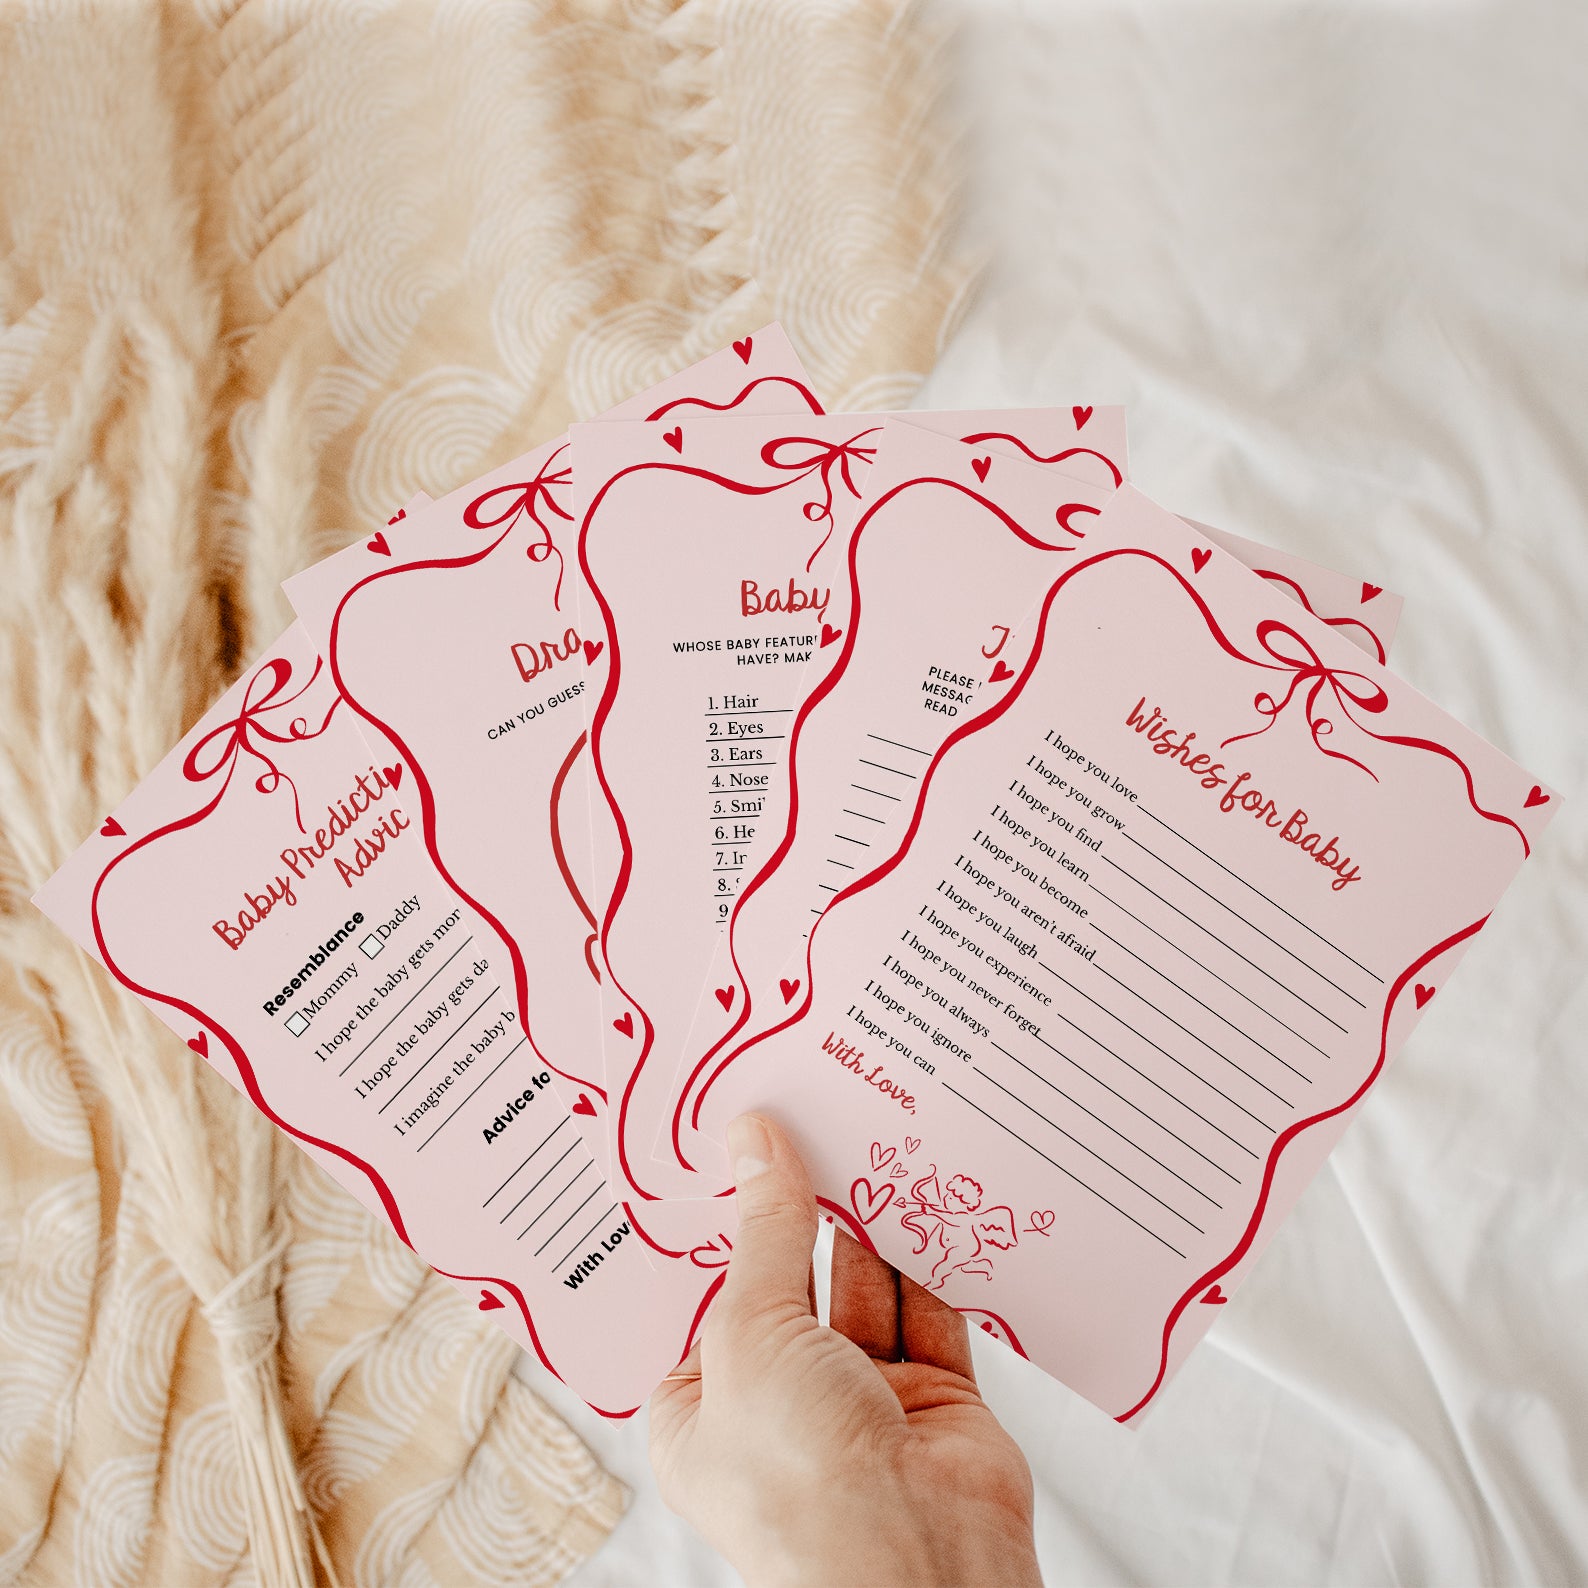 Baby Predicti
Advic
Resemblance
Mommy Daddy
I hope the baby gets mor
I hope the baby gets da
I imagine the baby b
Advice fo
With Lov
Dra
CAN YOU GUESS
Baby
WHOSE BABY FEATUR
HAVE? MAK
1. Hair
2. Eyes
3. Ears
4. Nose
5. Smi
6. He
7. Ir
8.
9
PLEASE
MESSAG
READ
Wishes for Baby
I hope you love
I hope you grow
I hope you find
I hope you learn
I hope you become
I hope you aren't afraid
I hope you laugh
I hope you experience
I hope you never forget
I hope you always
I hope you ignore
I hope you can
With Love,